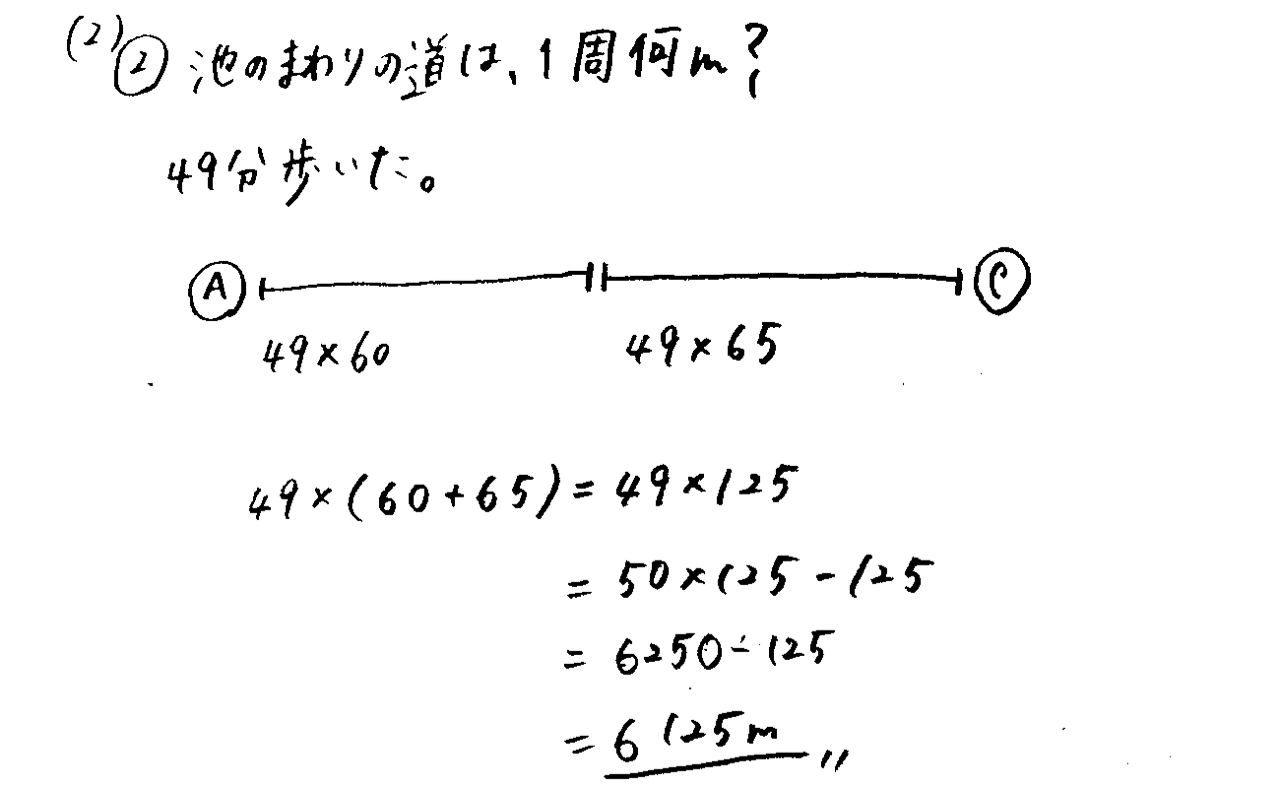 (2)② 池のまわりの道は、1周何m?
49分歩いた。
Ⓐ Ⓒ
49×60 49×65
49×(60+65)=49×125
=50×125-125
=6250-125
=6125m〃